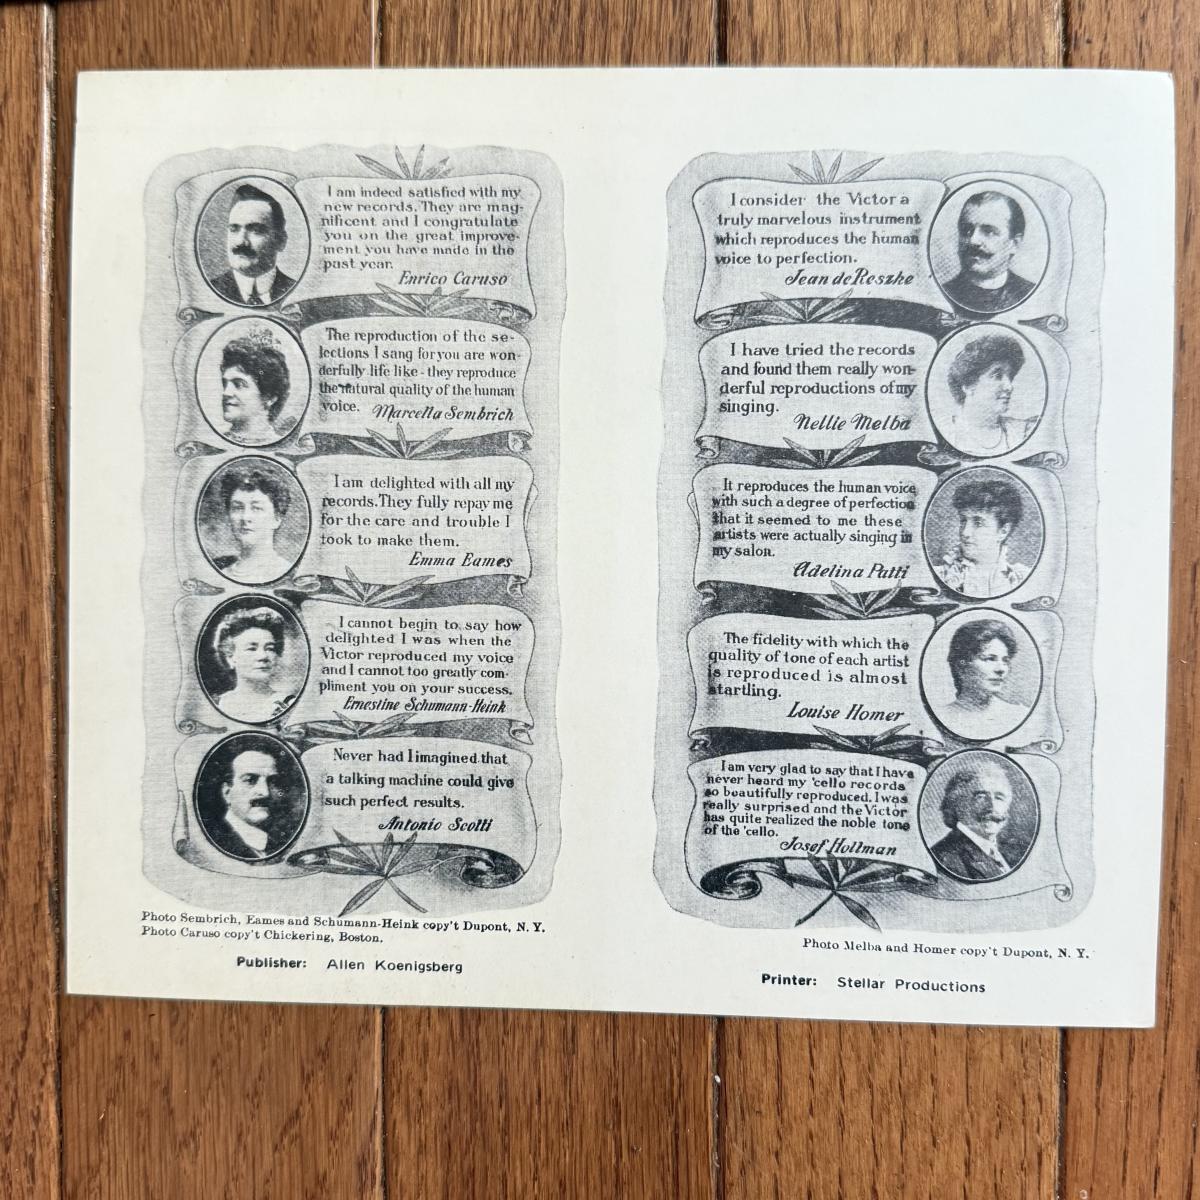 I am indeed satisfied with my
new records. They are mag-
nificent and I congratulate
you on the great improve-
ment you have made in the
past year.
Enrico Caruso
The reproduction of the se-
lections I sang for you are won-
derfully life like - they reproduce
the natural quality of the human
voice. Marcella Sembrich
I am delighted with all my
records. They fully repay me
for the care and trouble I
took to make them.
Emma Eames
I cannot begin to say how
delighted I was when the
Victor reproduced my voice
and I cannot too greatly com-
pliment you on your success.
Ernestine Schumann-Heink
Never had I imagined that
a talking machine could give
such perfect results.
Antonio Scotti
Photo Sembrich, Eames and Schumann-Heink copy't Dupont, N. Y.
Photo Caruso copy't Chickering, Boston.
Publisher: Allen Koenigsberg
I consider the Victor a
truly marvelous instrument
which reproduces the human
voice to perfection.
Jean de Reszke
I have tried the records
and found them really won-
derful reproductions of my
singing.
Nellie Melba
It reproduces the human voice
with such a degree of perfection
that it seemed to me these
artists were actually singing in
my salon.
Adelina Patti
The fidelity with which the
quality of tone of each artist
is reproduced is almost
startling.
Louise Homer
I am very glad to say that I have
never heard my 'cello records
so beautifully reproduced. I was
really surprised and the Victor
has quite realized the noble tone
of the 'cello.
Josef Hollman
Photo Melba and Homer copy't Dupont, N. Y.
Printer: Stellar Productions